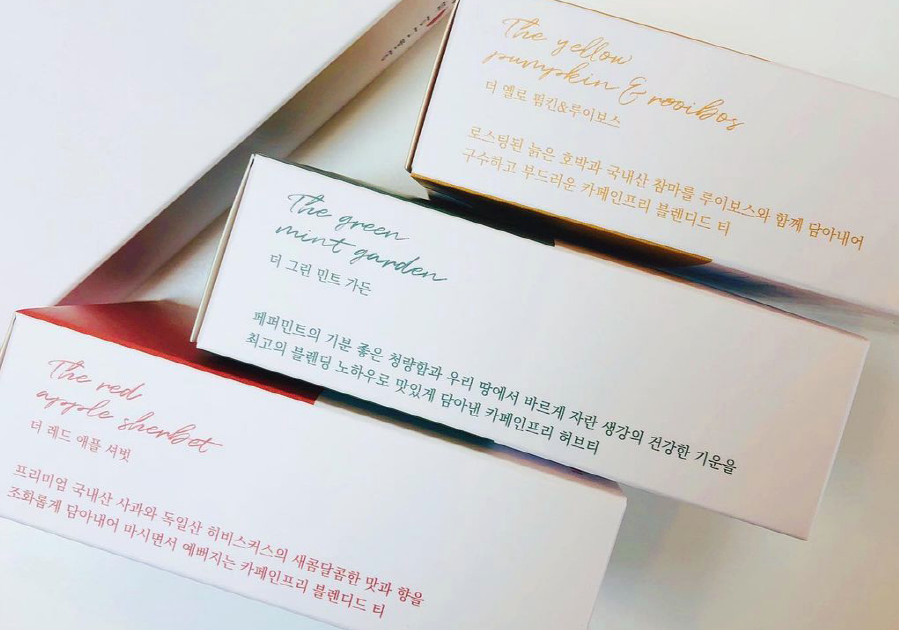 The yellow
pumpkin & rooibos
더 옐로 펌킨&루이보스
로스팅된 늙은 호박과 국내산 참마를 루이보스와 함께 담아내어
구수하고 부드리운 카페인프리 블렌디드 티
The green
mint garden
더 그린 민트 가든
페퍼민트의 기분 좋은 청량함과 우리 땅에서 바르게 자란 생강의 건강한 기운을
최고의 블렌딩 노하우로 맛있게 담아낸 카페인프리 허브티
The red
apple sherbet
더 레드 애플 셔벗
프리미엄 국내산 사과와 독일산 히비스커스의 새콤달콤한 맛과 향을
조화롭게 담아내어 마시면서 예뻐지는 카페인프리 블렌디드 티